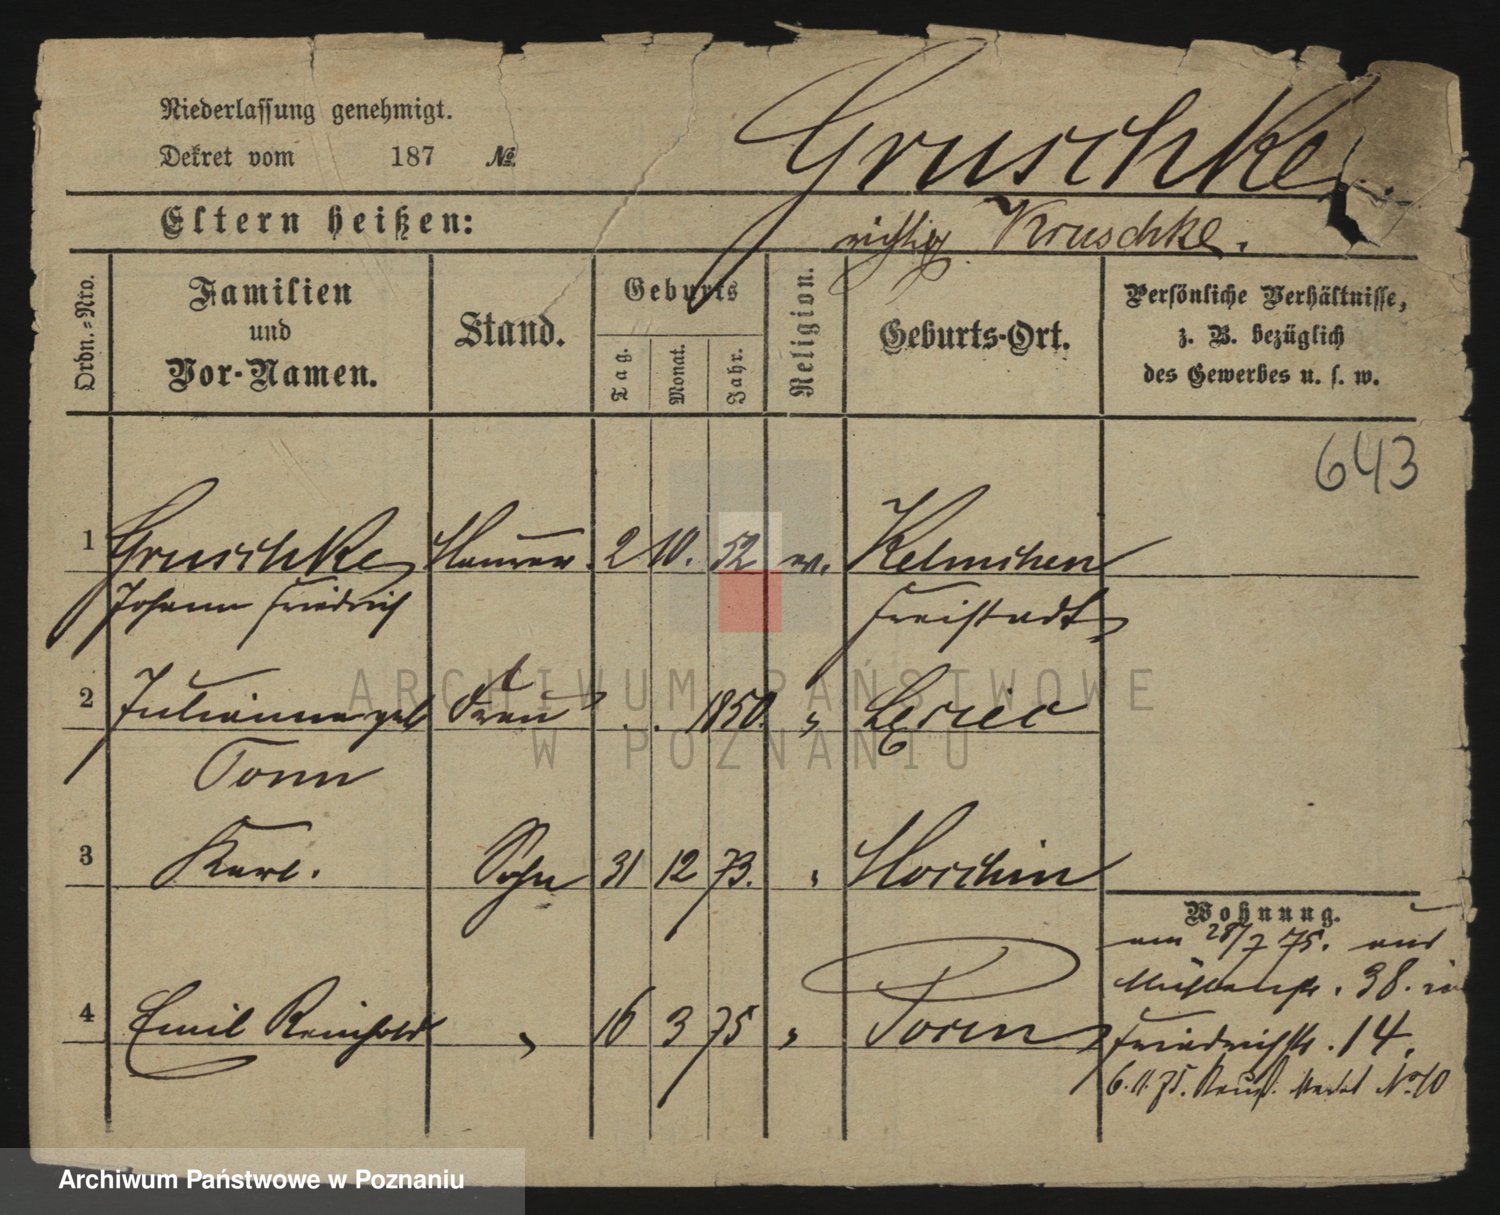 Niederlassung genehmigt.
Dekret vom 187 №
Gruschke
Eltern heißen:
richtig Kruschke.
Ordn.-Nro.
Familien und Vor-Namen.
Stand.
Geburts
Tag.
Monat.
Jahr.
Religion.
Geburts-Ort.
Persönliche Verhältnisse,
z. B. bezüglich
des Gewerbes u. s. w.
643
1 Gruschke Maurer 2 10. 52 ev. Kelmchen
Johann Friedrich Freistadt
2 Julianna geb Frau 1850. "
Tonn
3 Karl. Sohn 31 12 73. " Korchin
4 Emil Reinhold " 16 3 75 " Posen
Wohnung.
am 28/7 75. aus
38. in
Friedrichstr. 14.
6. 11. 75. Markt No 10
ARCHIWUM PAŃSTWOWE
W POZNANIU
Archiwum Państwowe w Poznaniu